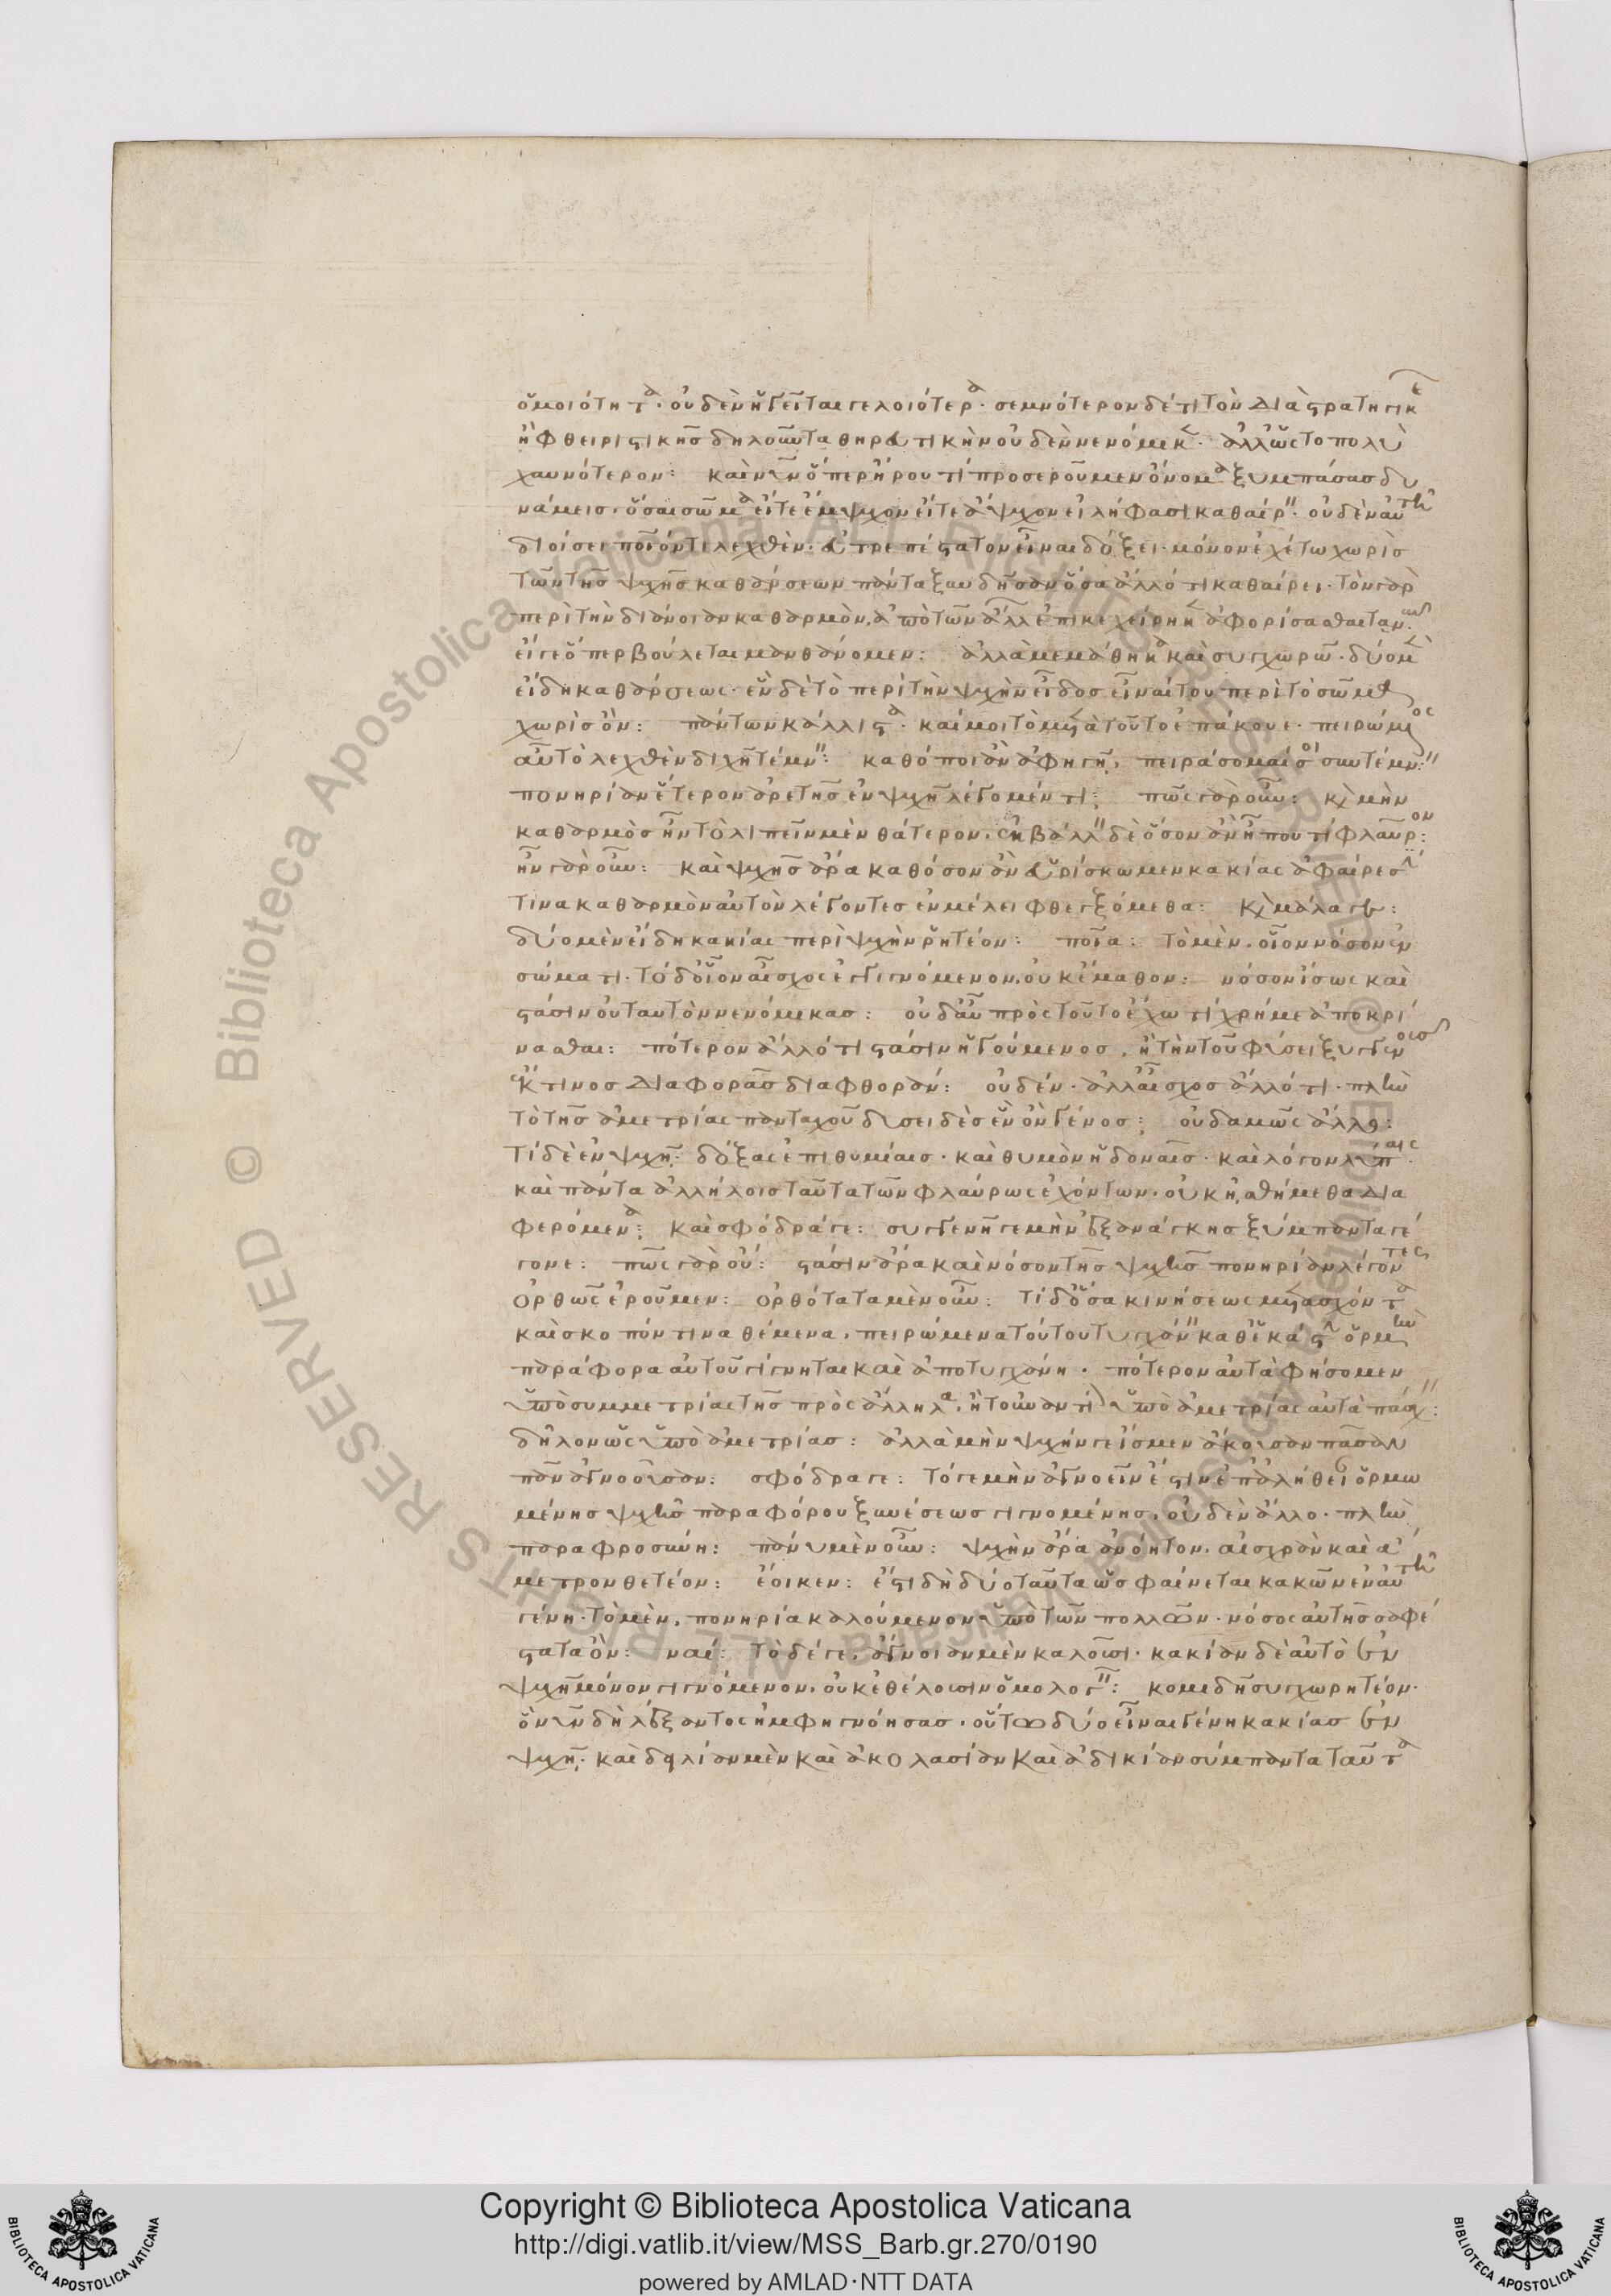 ὁμοιότητα· οὐδὲν ἡγεῖται γελοιότερα· σεμνότερον δέ τι τὸν διὰ στρατηγικῆς
ἢ φθειριστικῆς δηλοῦντα θηρευτικὴν οὐδὲν νενόμικεν· ἀλλ' ὡς τὸ πολὺ
χαυνότερον: καὶ νῦν ὅπερ ἤρου τί προσεροῦμεν ὄνομα ξυμπάσας δυ
νάμεις· ὅσαι σῶμα εἴτε ἔμψυχον εἴτε ἄψυχον εἰλήφασι καθαίρειν· οὐδὲν αὐτῆ
διοίσει ποῖόν τι λεχθὲν: εὐπρεπέστατον εἶναι δόξει· μόνον ἐχέτω χωρὶς
τῶν τῆς ψυχῆς καθάρσεων πάντα ξυνδῆσαν ὅσα ἄλλό τι καθαίρει· τὸν γὰρ
περὶ τὴν διάνοιαν καθαρμὸν, ἀπὸ τῶν ἄλλων ἐπικεχείρηκεν ἀφορίσασθαι τανῦν·
εἴ γε ὅπερ βούλεται μανθάνομεν: ἀλλὰ μεμάθηκα καὶ συγχωρῶ· δύο μὲν
εἴδη καθάρσεως· ἓν δὲ τὸ περὶ τὴν ψυχὴν εἶδος εἶναι τοῦ περὶ τὸ σῶμα
χωρὶς ὂν: πάντων κάλλιστα· καί μοι τὸ μετὰ τοῦτο ἐπάκουε· πειρώμενος
αὖ τὸ λεχθὲν διχῆ τέμνειν: καθ' ὁποῖ' ἂν ἀφηγῆ, πειράσομαί σοι συντέμνειν:
πονηρίαν ἕτερον ἀρετῆς ἐν ψυχῆ λέγομέν τι; πῶς γὰρ οὔ: καὶ μὴν
καθαρμὸς ἦν τὸ λιπεῖν μὲν θάτερον, ἐκβάλλειν δὲ ὅσον ἂν ᾖ που τί φλαῦρον:
ἦν γὰρ οὖν: καὶ ψυχῆς ἄρα καθόσον ἂν εὑρίσκωμεν κακίας ἀφαίρεσίν
τινα καθαρμὸν αὐτὸν λέγοντες ἐν μέλει φθεγξόμεθα: καὶ μάλα γε:
δύο μὲν εἴδη κακίας περὶ ψυχὴν ῥητέον: ποῖα: τὸ μὲν, οἷον νόσον ἐν
σώματι· τὸ δ' οἷον αἶσχος ἐγγιγνόμενον, οὐκ ἔμαθον: νόσον ἴσως καὶ
στάσιν οὐ ταυτὸν νενόμικας: οὐδ' αὖ πρὸς τοῦτο ἔχω τί χρή με ἀποκρί
νασθαι: πότερον ἄλλό τι στάσιν ἡγούμενος, ἢ τὴν τοῦ φύσει ξυγγενοῦς
ἔκ τινος διαφορᾶς διαφθοράν: οὐδέν· ἀλλ' αἶσχος ἄλλό τι· πλὴν
τὸ τῆς ἀμετρίας πανταχοῦ δυσειδὲς ἓν ὂν γένος: οὐδαμῶς ἄλλο:
τί δὲ ἐν ψυχῆ: δόξας ἐπιθυμίαις· καὶ θυμὸν ἡδοναῖς· καὶ λόγον λύπαις·
καὶ πάντα ἀλλήλοις ταῦτα τῶν φλαύρως ἐχόντων, οὐκ ἠσθήμεθα δια
φερόμενα: καὶ σφόδρά γε: συγγενῆ γε μὴν ἐξ ἀνάγκης ξύμπαντα γέ
γονε: πῶς γὰρ οὔ: στάσιν ἄρα καὶ νόσον τῆς ψυχῆς πονηρίαν λέγοντες
ὀρθῶς ἐροῦμεν: ὀρθότατα μὲν οὖν: τί δ' ὅσα κινήσεως μετασχόντα
καὶ σκοπόν τινα θέμενα, πειρώμενα τούτου τυγχάνειν καθ' ἑκάστην ὁρμὴν
παράφορα αὐτοῦ γίγνηται καὶ ἀποτυγχάνη· πότερον αὐτὰ φήσομεν
ὑπὸ συμμετρίας τῆς πρὸς ἄλληλα, ἢ τοὐναντίον ὑπὸ ἀμετρίας αὐτὰ πάσχειν:
δῆλον ὡς ὑπὸ ἀμετρίας: ἀλλὰ μὴν ψυχήν γε ἴσμεν ἄκουσαν πᾶσαν
πᾶν ἀγνοοῦσαν: σφόδρα γε: τό γε μὴν ἀγνοεῖν ἐστὶν ἐπ' ἀλήθειαν ὁρμω
μένης ψυχῆς παραφόρου ξυνέσεως γιγνομένης, οὐδὲν ἄλλο· πλὴν
παραφροσύνη: πάνυ μὲν οὖν: ψυχὴν ἄρα ἀνόητον, αἰσχρὰν καὶ ἄ
μετρον θετέον: ἔοικεν: ἔστι δὴ δύο ταῦτα ὡς φαίνεται κακῶν ἐν αὐτῆ
γένη· τὸ μὲν, πονηρία καλούμενον ὑπὸ τῶν πολλῶν· νόσος αὐτῆς σαφέ
στατα ὂν: ναί: τὸ δέ γε, ἄγνοιαν μὲν καλοῦσι· κακίαν δὲ αὐτὸ ἐν
ψυχῆ μόνον γιγνόμενον, οὐκ ἐθέλουσιν ὁμολογεῖν: κομιδῆ συγχωρητέον·
ὃ νῦν δὴ λέξαντος ἠμφηγνόησας, οὕτω δύο εἶναι γένη κακίας ἐν
ψυχῆ· καὶ δειλίαν μὲν καὶ ἀκολασίαν καὶ ἀδικίαν σύμπαντα ταῦτα
Copyright © Biblioteca Apostolica Vaticana
http://digi.vatlib.it/view/MSS_Barb.gr.270/0190
powered by AMLAD·NTT DATA
BIBLIOTECA APOSTOLICA VATICANA
BIBLIOTECA APOSTOLICA VATICANA
© Biblioteca Apostolica Vaticana ALL RIGHTS RESERVED